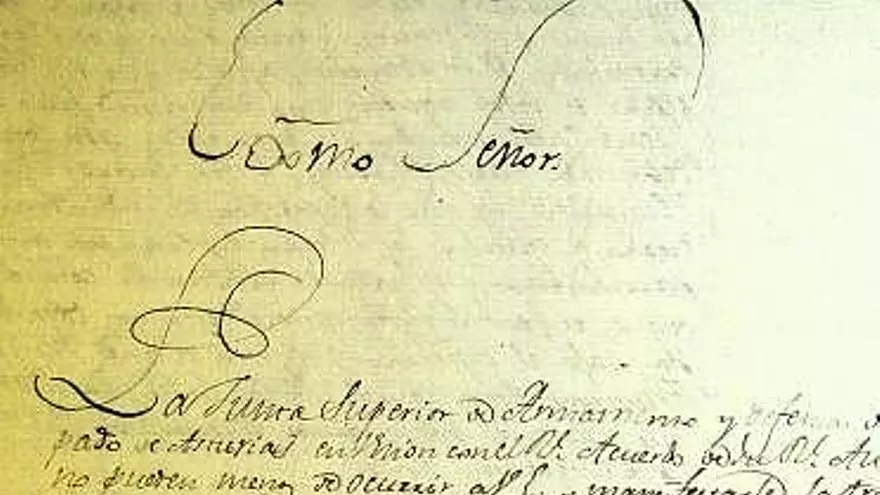 Exmo Señor.
La Junta Superior de Armamento y defensa
pado de Asturias en Union con el Rl. Acuerdo de su Rl. Au
no pueden menos de ocurrir a V. E. y manifestar